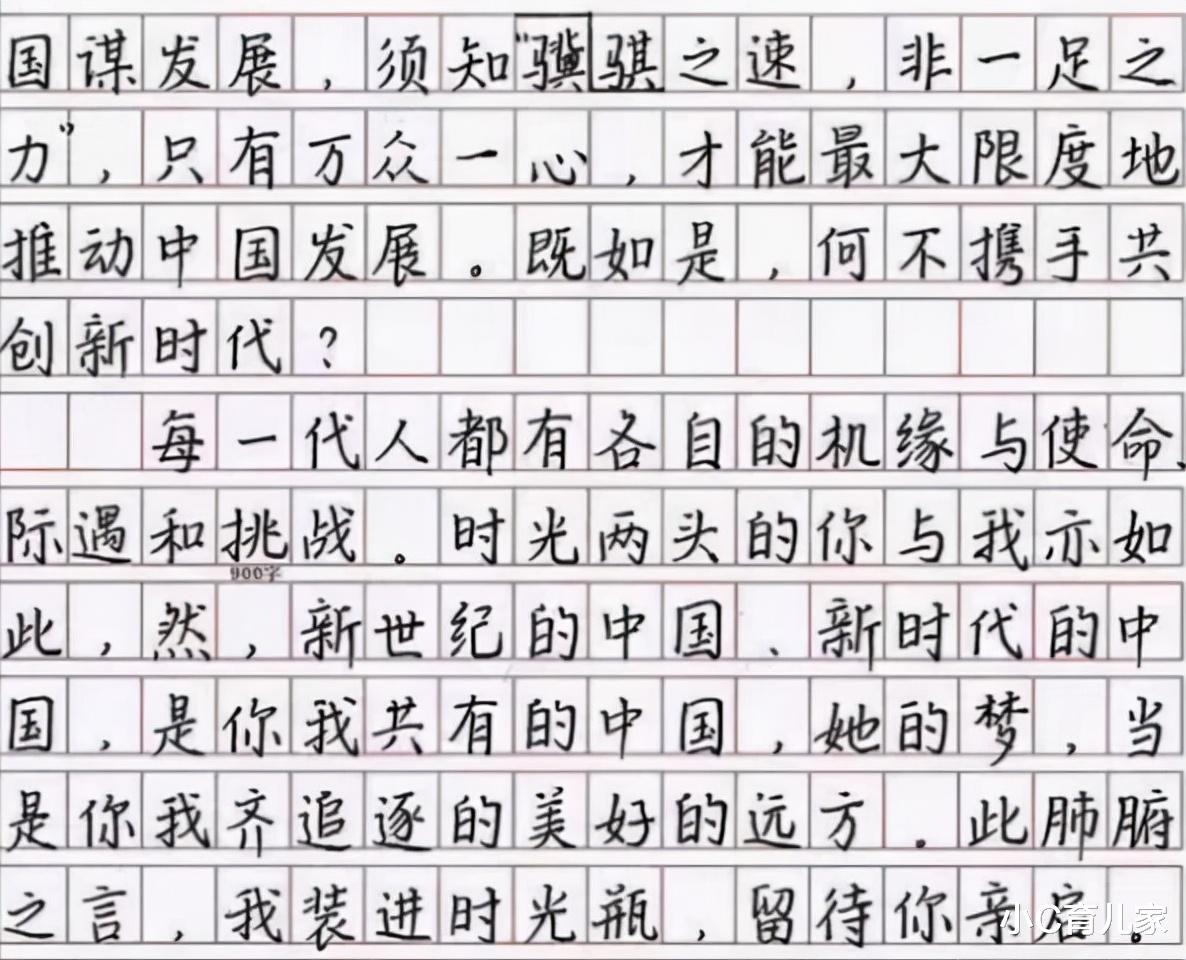 国谋发展，须知“骥骐之速，非一足之
力”，只有万众一心，才能最大限度地
推动中国发展。既如是，何不携手共
创新时代？
每一代人都有各自的机缘与使命、
际遇和挑战。时光两头的你与我亦如
900字
此，然，新世纪的中国、新时代的中
国，是你我共有的中国，她的梦，当
是你我齐追逐的美好的远方。此肺腑
之言，我装进时光瓶，留待你亲启。
小C育儿家